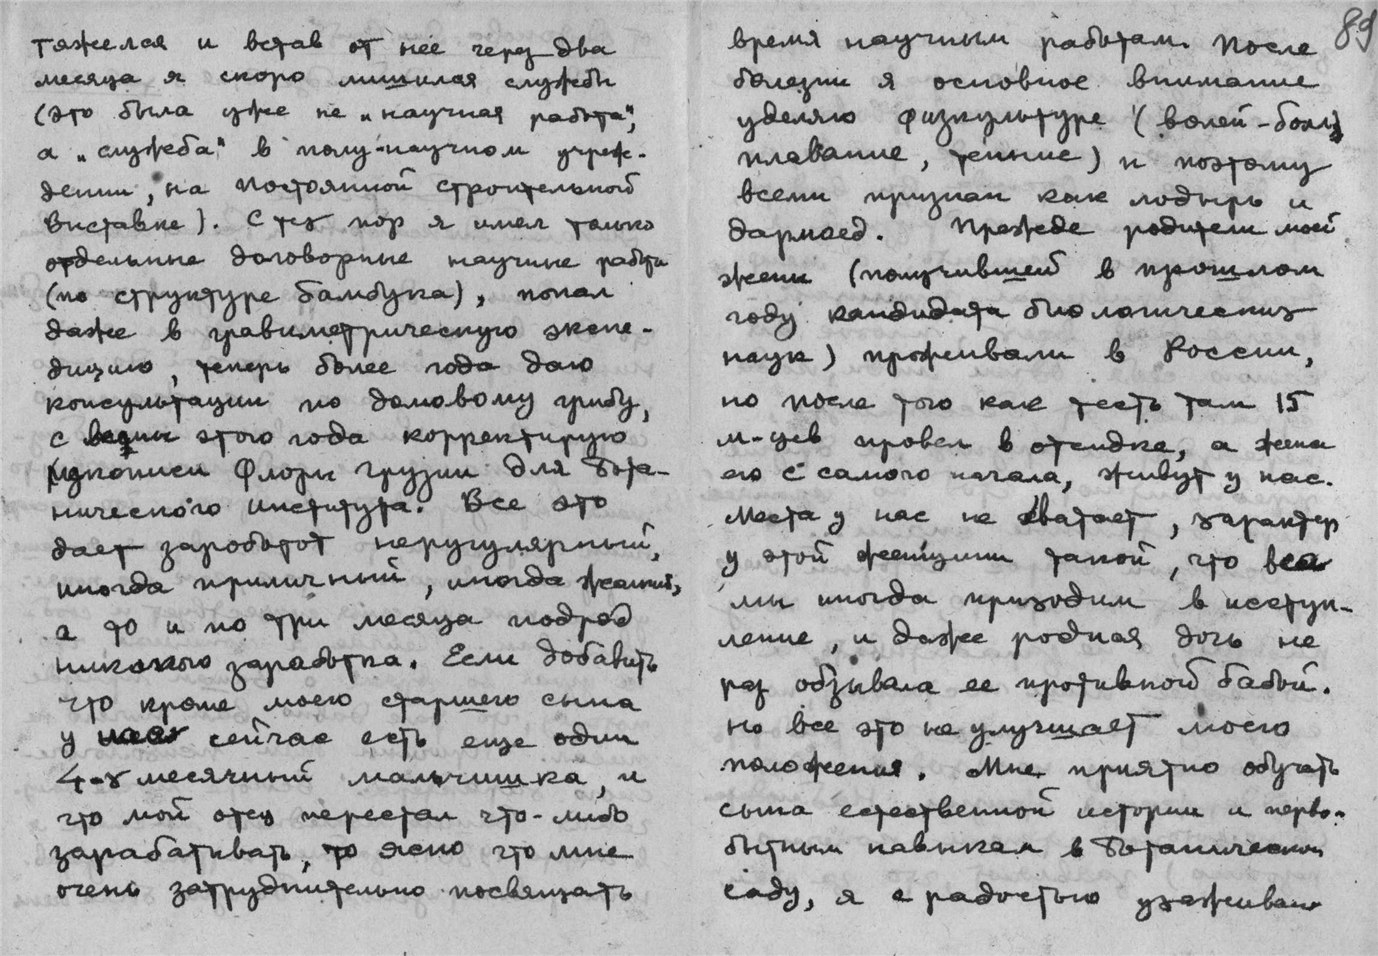 тяжелая и встав от нее через два
месяца я скоро лишился службы
(это была уже не „научная работа",
а „служба" в полу-научном учреж-
дении, на постоянной строительной
выставке). С тех пор я имел только
отдельные договорные научные работы
(по структуре бамбука), попал
даже в гравиметрическую экспе-
дицию, теперь более года даю
консультации по домовому грибу,
с весны этого года корректирую
рукописи Флоры Грузии для Бота-
нического института. Все это
дает заработок нерегулярный,
иногда приличный, иногда жалкий,
а то и по три месяца подряд
никакого заработка. Если добавить
что кроме моего старшего сына
у нас сейчас есть еще один
4-х месячный мальчишка, и
что мой отец перестал что-либо
зарабатывать, то ясно что мне
очень затруднительно посвящать
89
время научным работам. После
болезни я основное внимание
уделяю физкультуре (волей-болу,
плавание, теннис) и поэтому
всеми признан как лодырь и
дармоед. Прежде родители моей
жены (получившей в прошлом
году кандидата биологических
наук) проживали в России,
но после того как тесть там 15
м-цев провел в отсидке, а жена
его с самого начала, живут у нас.
Места у нас не хватает, характер
у этой женщины такой, что все
мы иногда приходим в исступ-
ление, и даже родная дочь не
раз обзывала ее противной бабой.
Но все это не улучшает моего
положения. Мне приятно обучать
сына естественной истории и перво-
бытным навыкам в Ботаническом
саду, я с радостью ухаживаю